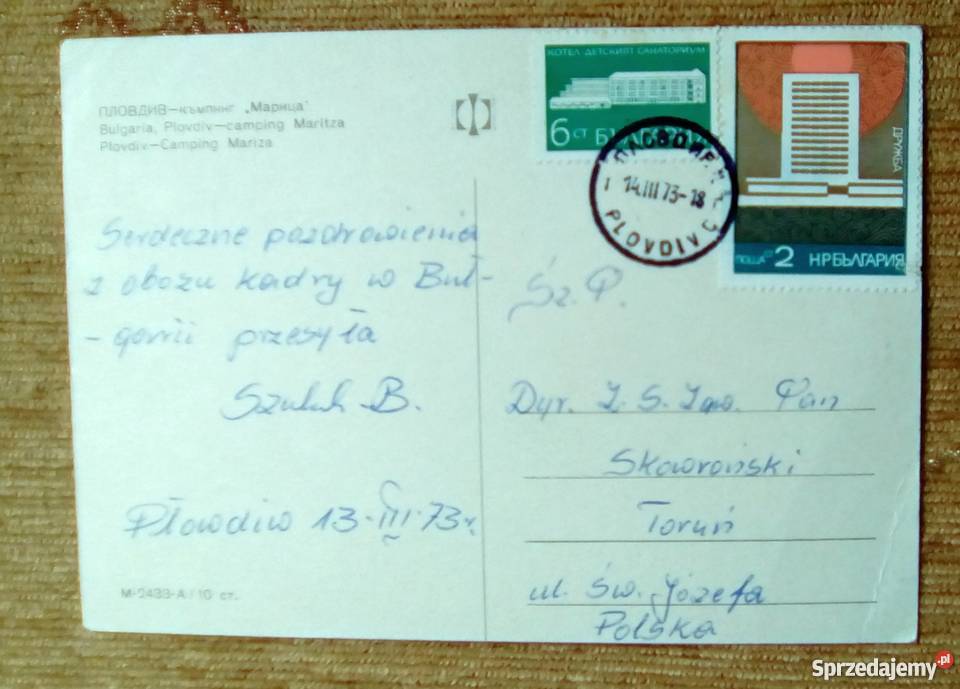 ПЛОВДИВ—къмпинг „Марица"
Bulgaria, Plovdiv—camping Maritza
Plovdiv—Camping Mariza
Serdeczne pozdrowienia
z obozu kadry w Buł-
-garii przesyła
B.
Płowdiw 13.III.73r.
М-2433-А/10 ст.
КОТЕЛ-ДЕТСКИЯТ САНАТОРИУМ
6 СТ БЪЛГАРИЯ
ДРУЖБА
ПОЩА 2 НРБЪЛГАРИЯ
ПЛОВДИВ
14.III.73-18
PLOVDIV
Sz. P.
Dyr. Z. S. Pan
Skowroński
Toruń
ul. Św. Józefa
Polska
Sprzedajemy.pl